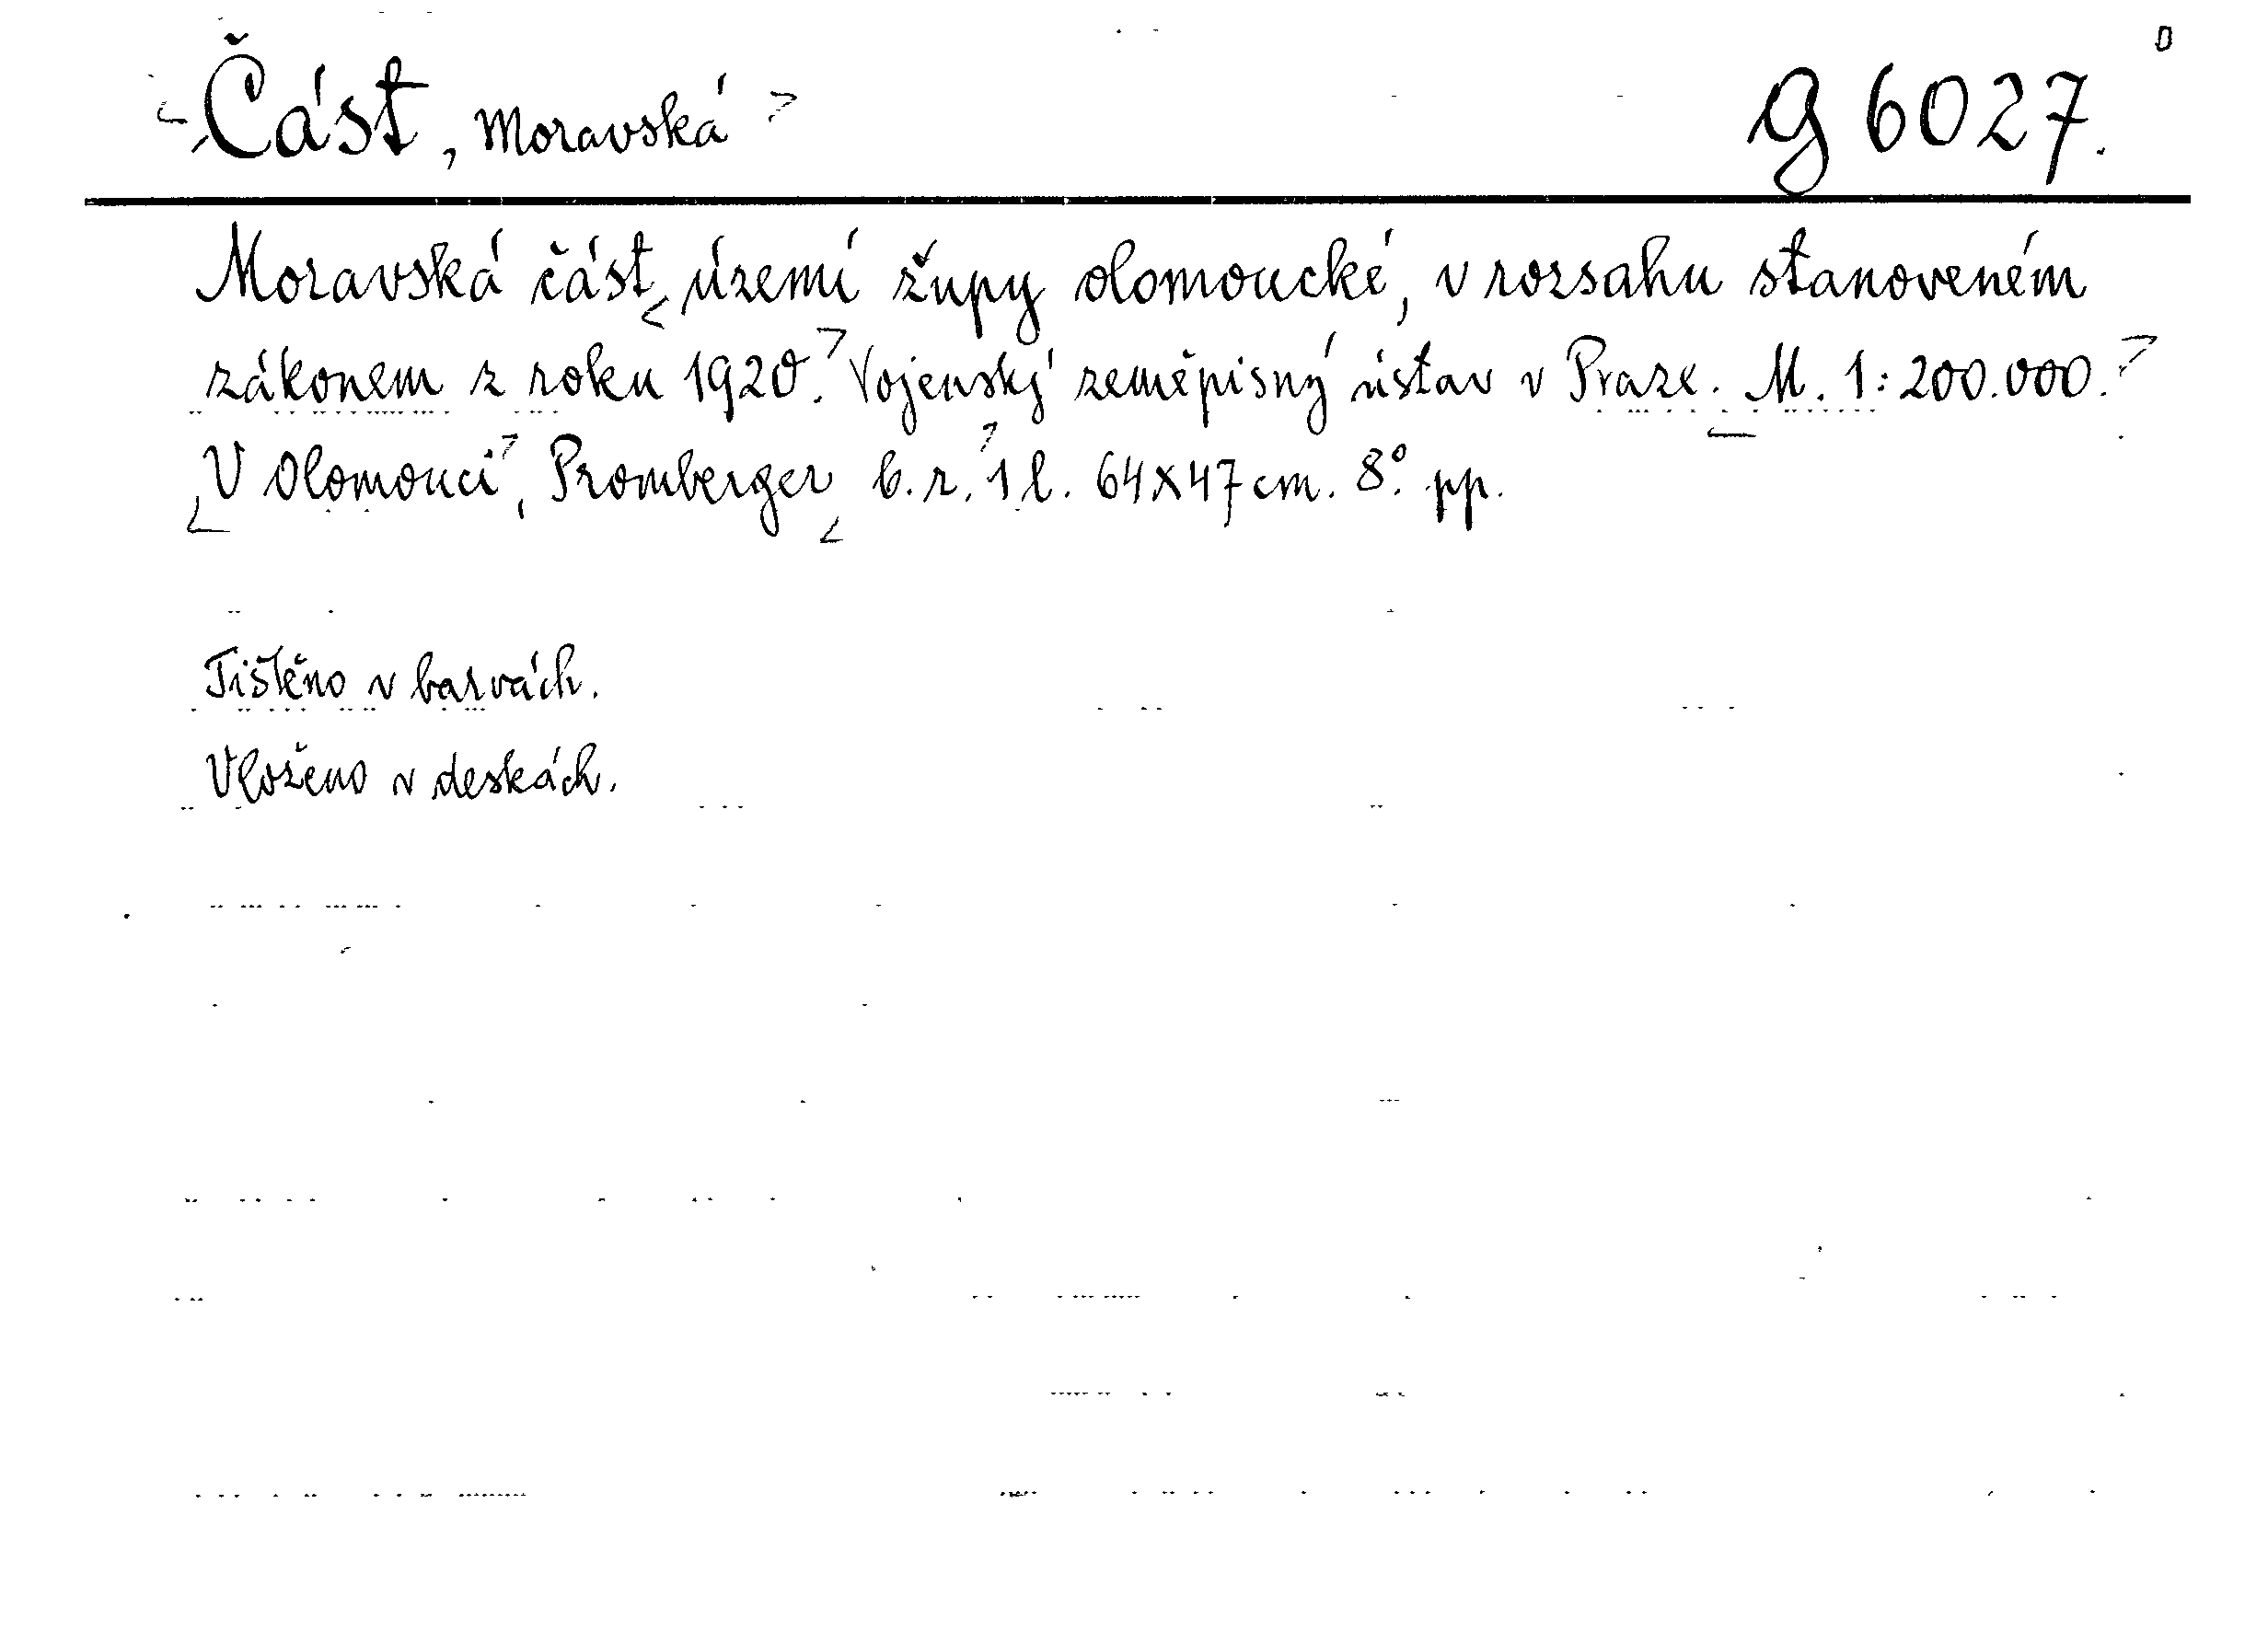 Část, Moravská G 6027.
Moravská část území župy olomoucké, v rozsahu stanoveném
zákonem z roku 1920. Vojenský zeměpisný ústav v Praze. M. 1:200.000.
V Olomouci, Promberger b. r. 1 l. 64x47 cm. 8°. pp.
Tištěno v barvách.
Vloženo v deskách.